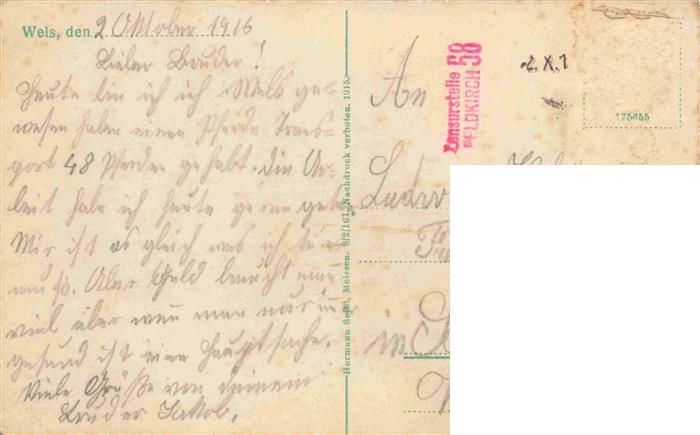 Wels, den 2 Oktober 1916
Lieber Bruder!
Heute bin ich ich Wels ge-
wesen haben einen Pferde Trans-
port 48 Pferde gehabt. die Ar-
beit hab ich heute geren getan
Mir ist es gleich was ich tuen
muß. Aber Geld braucht man
viel aber wenn man nur immer
gesund ist eine Hauptsache.
Viele Grüße von deinem
Bruder Jakob.
Hermann Seibt, Meissen. 8/2/161. Nachdruck verboten. 1915.
An
Zensurstelle 58
FELDKIRCH 58
2. X. 1
175655
in